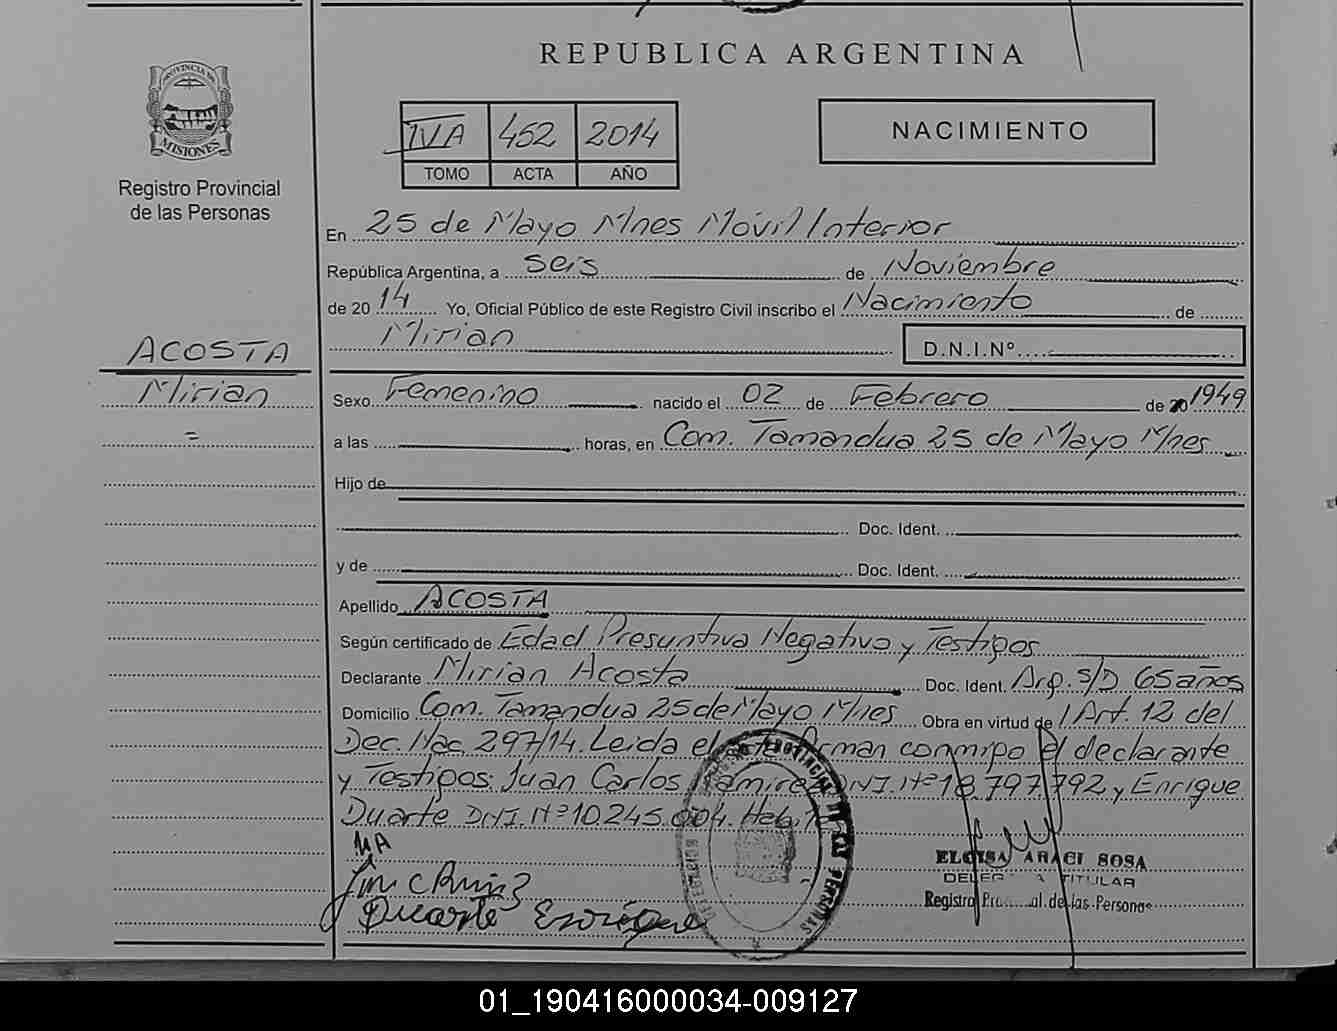 REPUBLICA ARGENTINA
PROVINCIA DE
MISIONES
Registro Provincial
de las Personas
IVA 452 2014
TOMO ACTA AÑO
NACIMIENTO
En 25 de Mayo Mnes Móvil Interior
República Argentina, a seis de Noviembre
de 2014 Yo, Oficial Público de este Registro Civil inscribo el Nacimiento de
Mirian D.N.I.Nº
ACOSTA
Mirian
=
Sexo Femenino nacido el 02 de Febrero de 1949
a las horas, en Com. Tamandua 25 de Mayo Mnes
Hijo de
Doc. Ident.
y de Doc. Ident.
Apellido ACOSTA
Según certificado de Edad Presuntiva Negativo y Testigos
Declarante Mirian Acosta Doc. Ident. Arg. S/D 65 años
Domicilio Com. Tamandua 25 de Mayo Mnes Obra en virtud de Art. 12 del
Dec. Nac. 297/14. Leida el firman conmigo el declarante
y Testigos: Juan Carlos Ramirez DNI. Nº 18.797.792 y Enrique
Duarte DNI. Nº 10.245.004.
MA
Duarte Enrique
PROVINCIAL DE LAS PERSONAS
ELOISA ARACI SOSA
DELEGADA TITULAR
Registro Provincial de las Personas
01_190416000034-009127